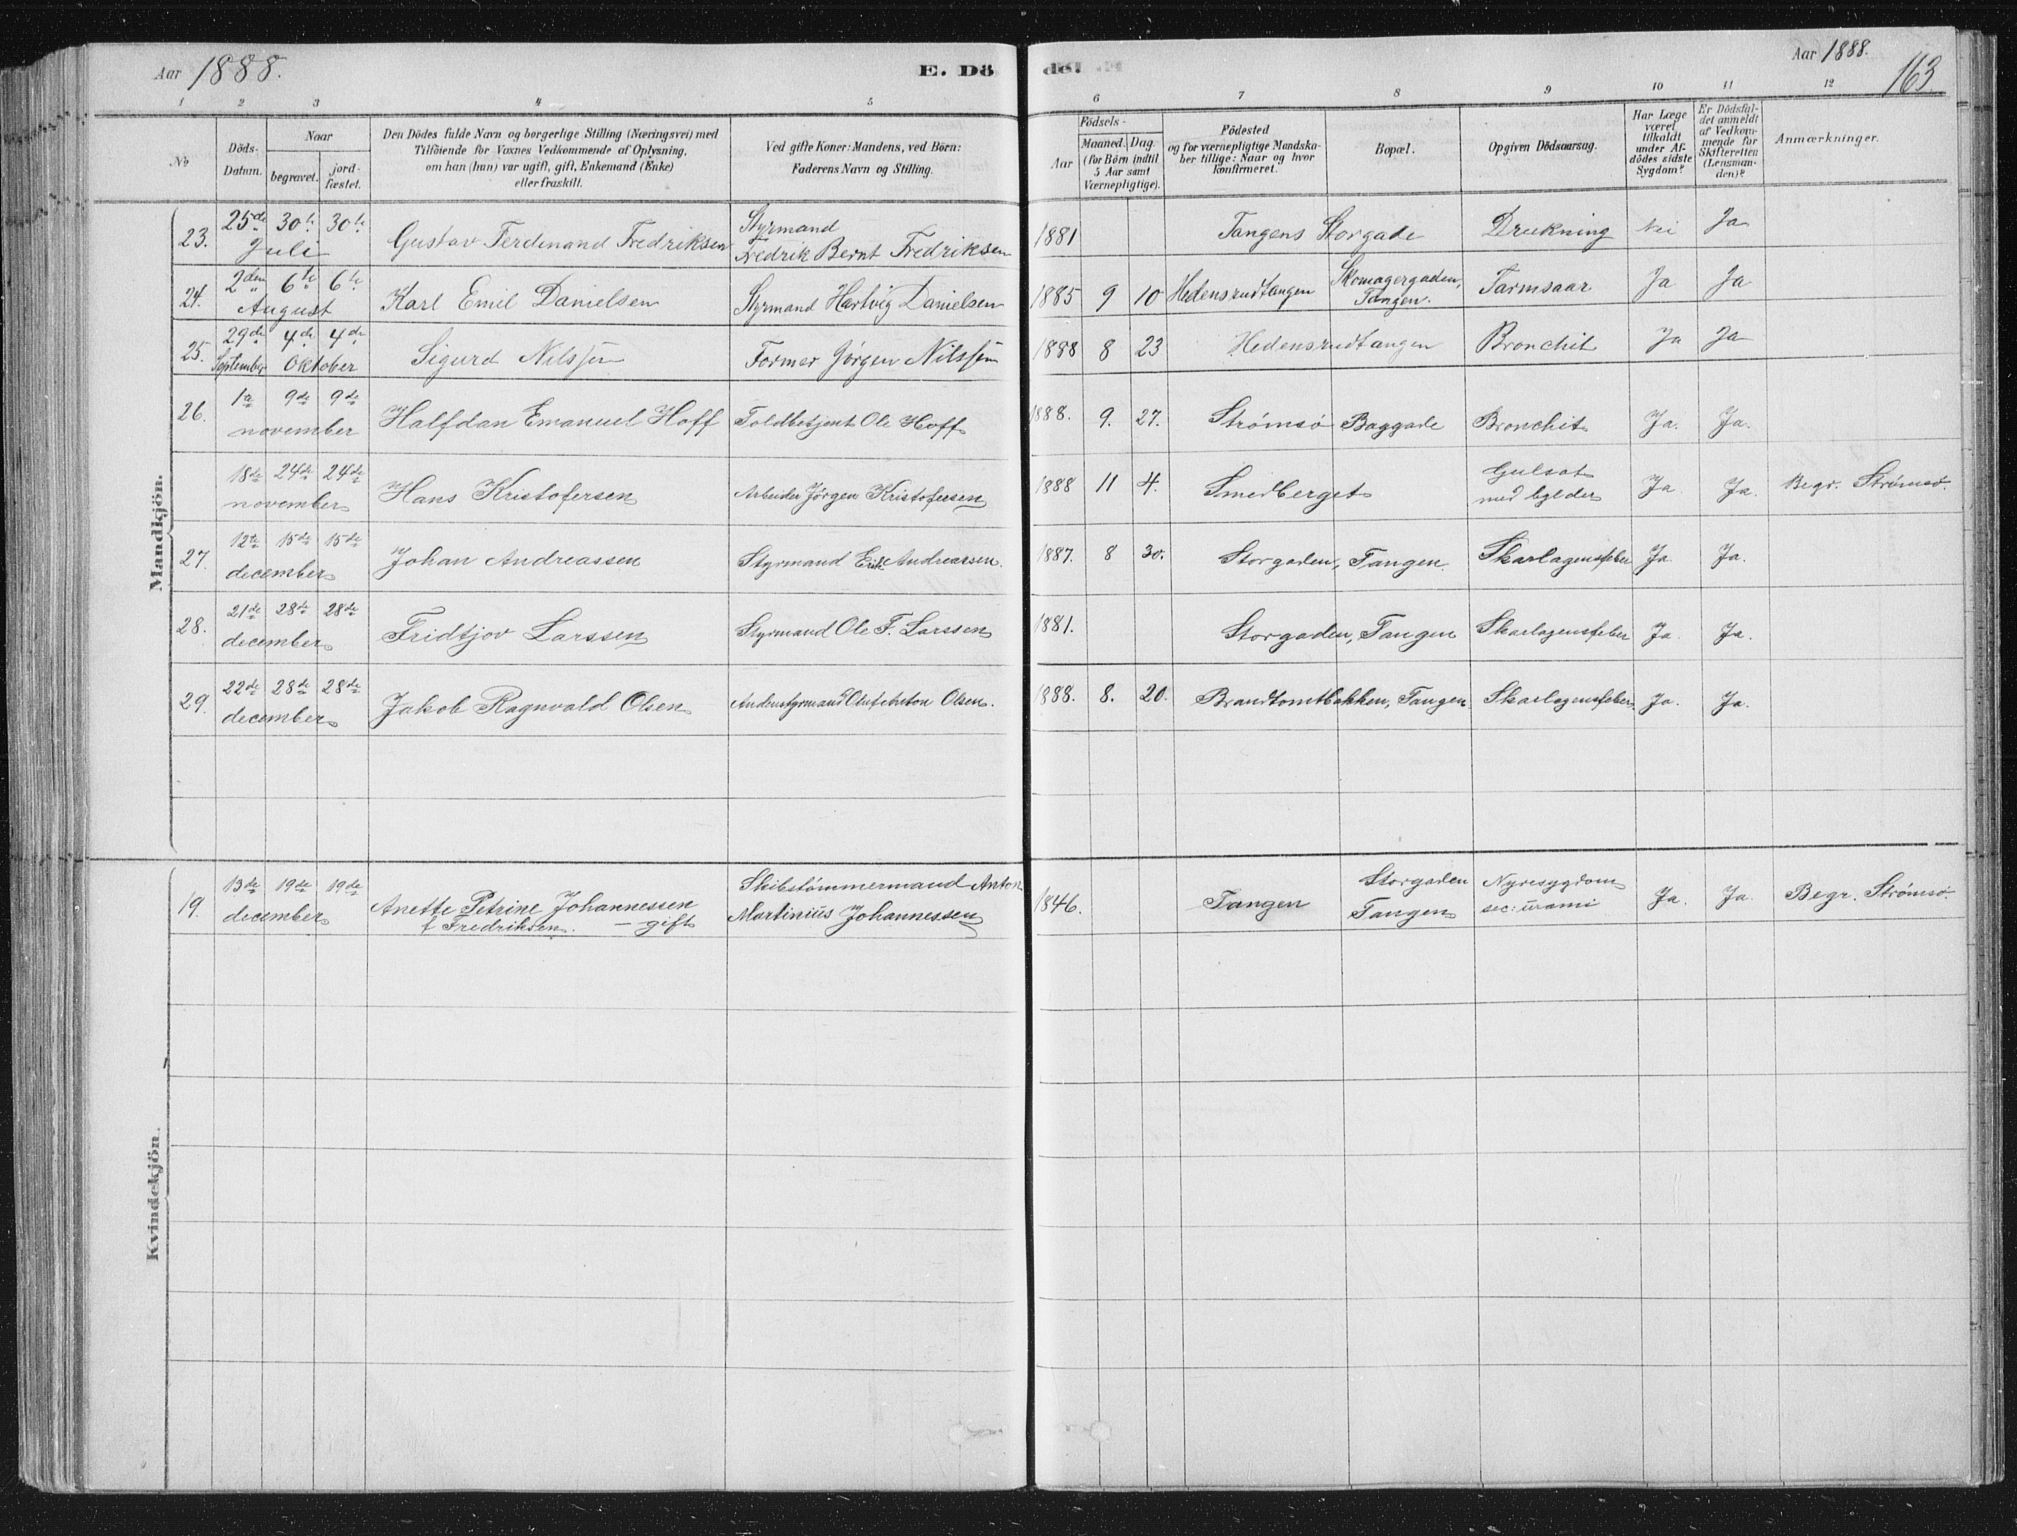 Aar 1888.
E. Dö
1 2 3 4 5
No
Döds-
Datum.
Naar
begravet.
jord-
fæstet.
Den Dödes fulde Navn og borgerlige Stilling (Næringsvei) med
Tilföiende for Voxnes Vedkommende af Oplysning,
om han (hun) var ugift, gift, Enkemand (Enke)
eller fraskilt.
Ved gifte Koner: Mandens, ved Börn:
Faderens Navn og Stilling.
Aar 1888.
163
de.
6 7 8 9 10 11 12
Födsels-
Aar
Maaned.
Dag.
(for Börn indtil
5 Aar samt
Værnepligtige).
Födested
og for værnepligtige Mandska-
ber tillige: Naar og hvor
konfirmeret.
Bopæl.
Opgiven Dödsaarsag.
Har Læge
været
tilkaldt
under Af-
dödes sidste
Sygdom?
Er Dödsfal-
det anmeldt
af Vedkom-
mende for
Skifteretten
(Lensman-
den)?
Anmærkninger.
Mandkjön.
23. 25de Juli 30te 30te Gustav Ferdinand Fredriksen Styrmand
Fredrik Bernt Fredriksen 1881 Tangens Storgade Drukning Nei Ja
24. 2den 6te 6te August Karl Emil Danielsen Styrmand Hartvig Danielsen 1885 9 10 Hedensrudtangen Skomagergaden,
Tangen. Tarmsaar Ja Ja
25. 29de September 4de 4de Oktober Sigurd Nilssen Former Jørgen Nilssen 1888 8 23 Hedensrudtangen Bronchit Ja Ja
26. 1ste 9de 9de november Halfdan Emanuel Hoff Toldbetjent Ole Hoff 1888. 9. 27. Strømsø Baggade Bronchit Ja. Ja.
18de 24de 24de november Hans Kristofersen Arbeider Jørgen Kristofersen 1888 11 4. Smedberget Gulsot
med bylder Ja Ja. Begr. Strømsø.
27. 12te 15de 15de december Johan Andreassen Styrmand Erik Andreassen. 1887. 8 30. Storgaden, Tangen. Skarlagensfeber Ja. Ja.
28. 21de 28de 28de december Fridtjov Larssen Styrmand Ole F. Larssen 1881. Storgaden, Tangen Skarlagensfeber Ja. Ja.
29. 22de 28de 28de december Jakob Ragnvald Olsen Andenstyrmand Olsen. 1888. 8. 20. Brandtomtbakken, Tangen Skarlagensfeber. Ja. Ja.
Kvindekjön.
19. 13de 19de 19de december Anette Petrine Johannessen
f Fredriksen. — gift Skibstømmermand Anton
Martinius Johannessen 1846. Tangen Storgaden
Tangen Nyresygdom
sec: urami Ja. Ja. Begr. Strømsø.